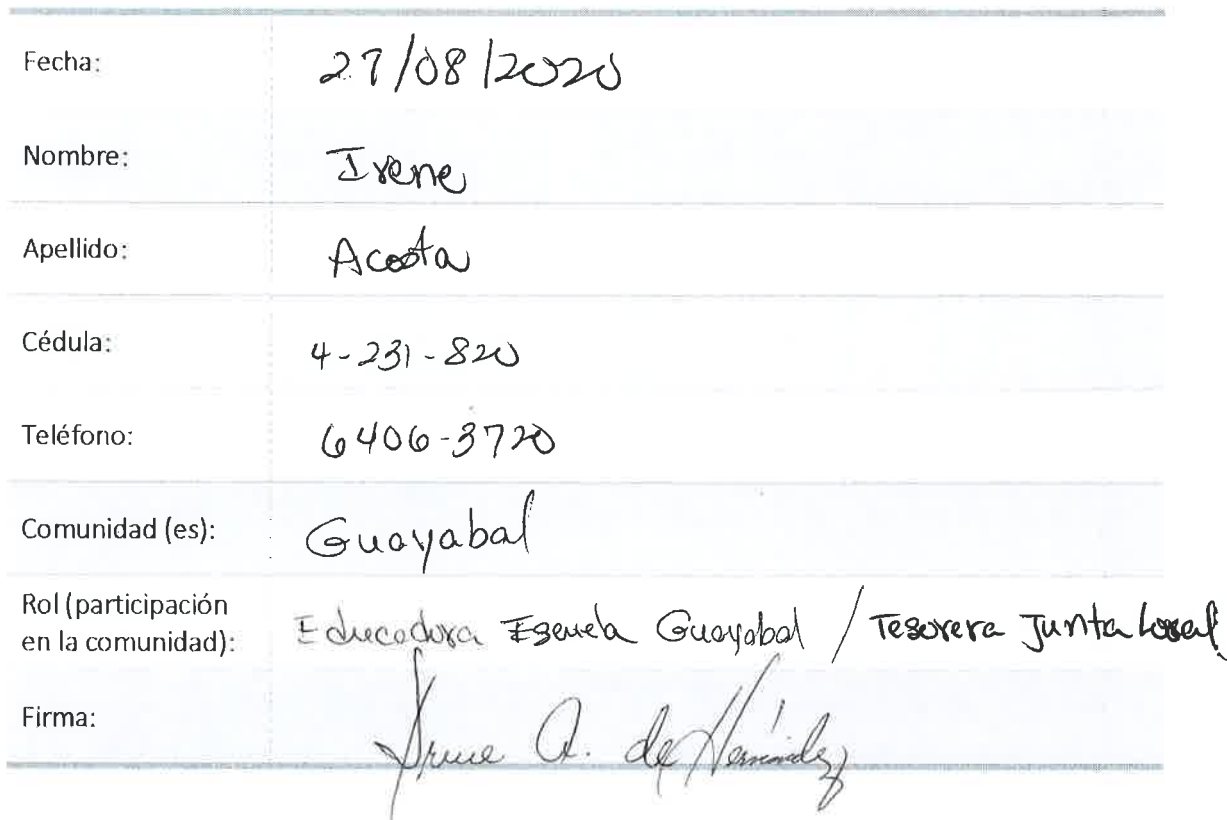 Fecha: 27/08/2020
Nombre: Irene
Apellido: Acosta
Cédula: 4-231-820
Teléfono: 6406-3720
Comunidad (es): Guayabal
Rol (participación
en la comunidad): Educadora Escuela Guayabal / Tesorera Junta Local.
Firma: Irene A. de Hernández